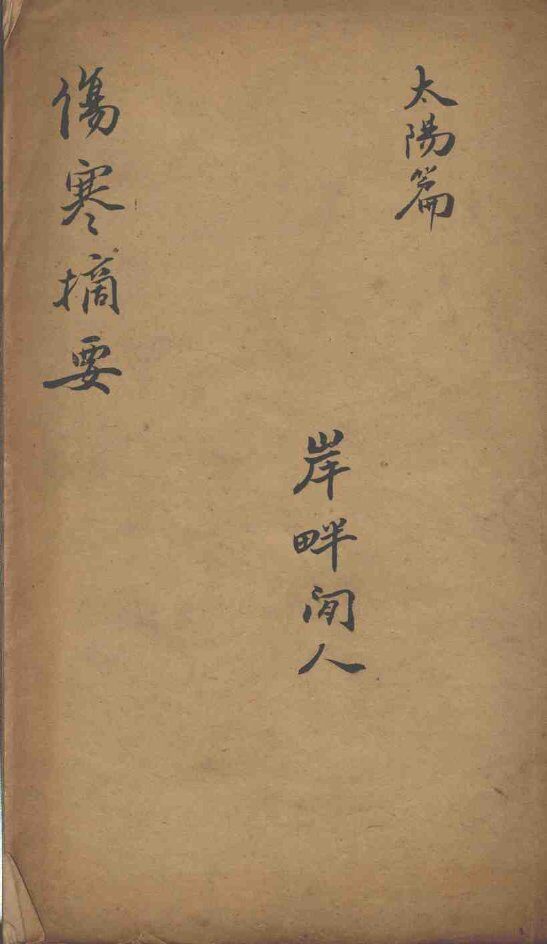 太陽篇
岸畔閒人
傷寒摘要